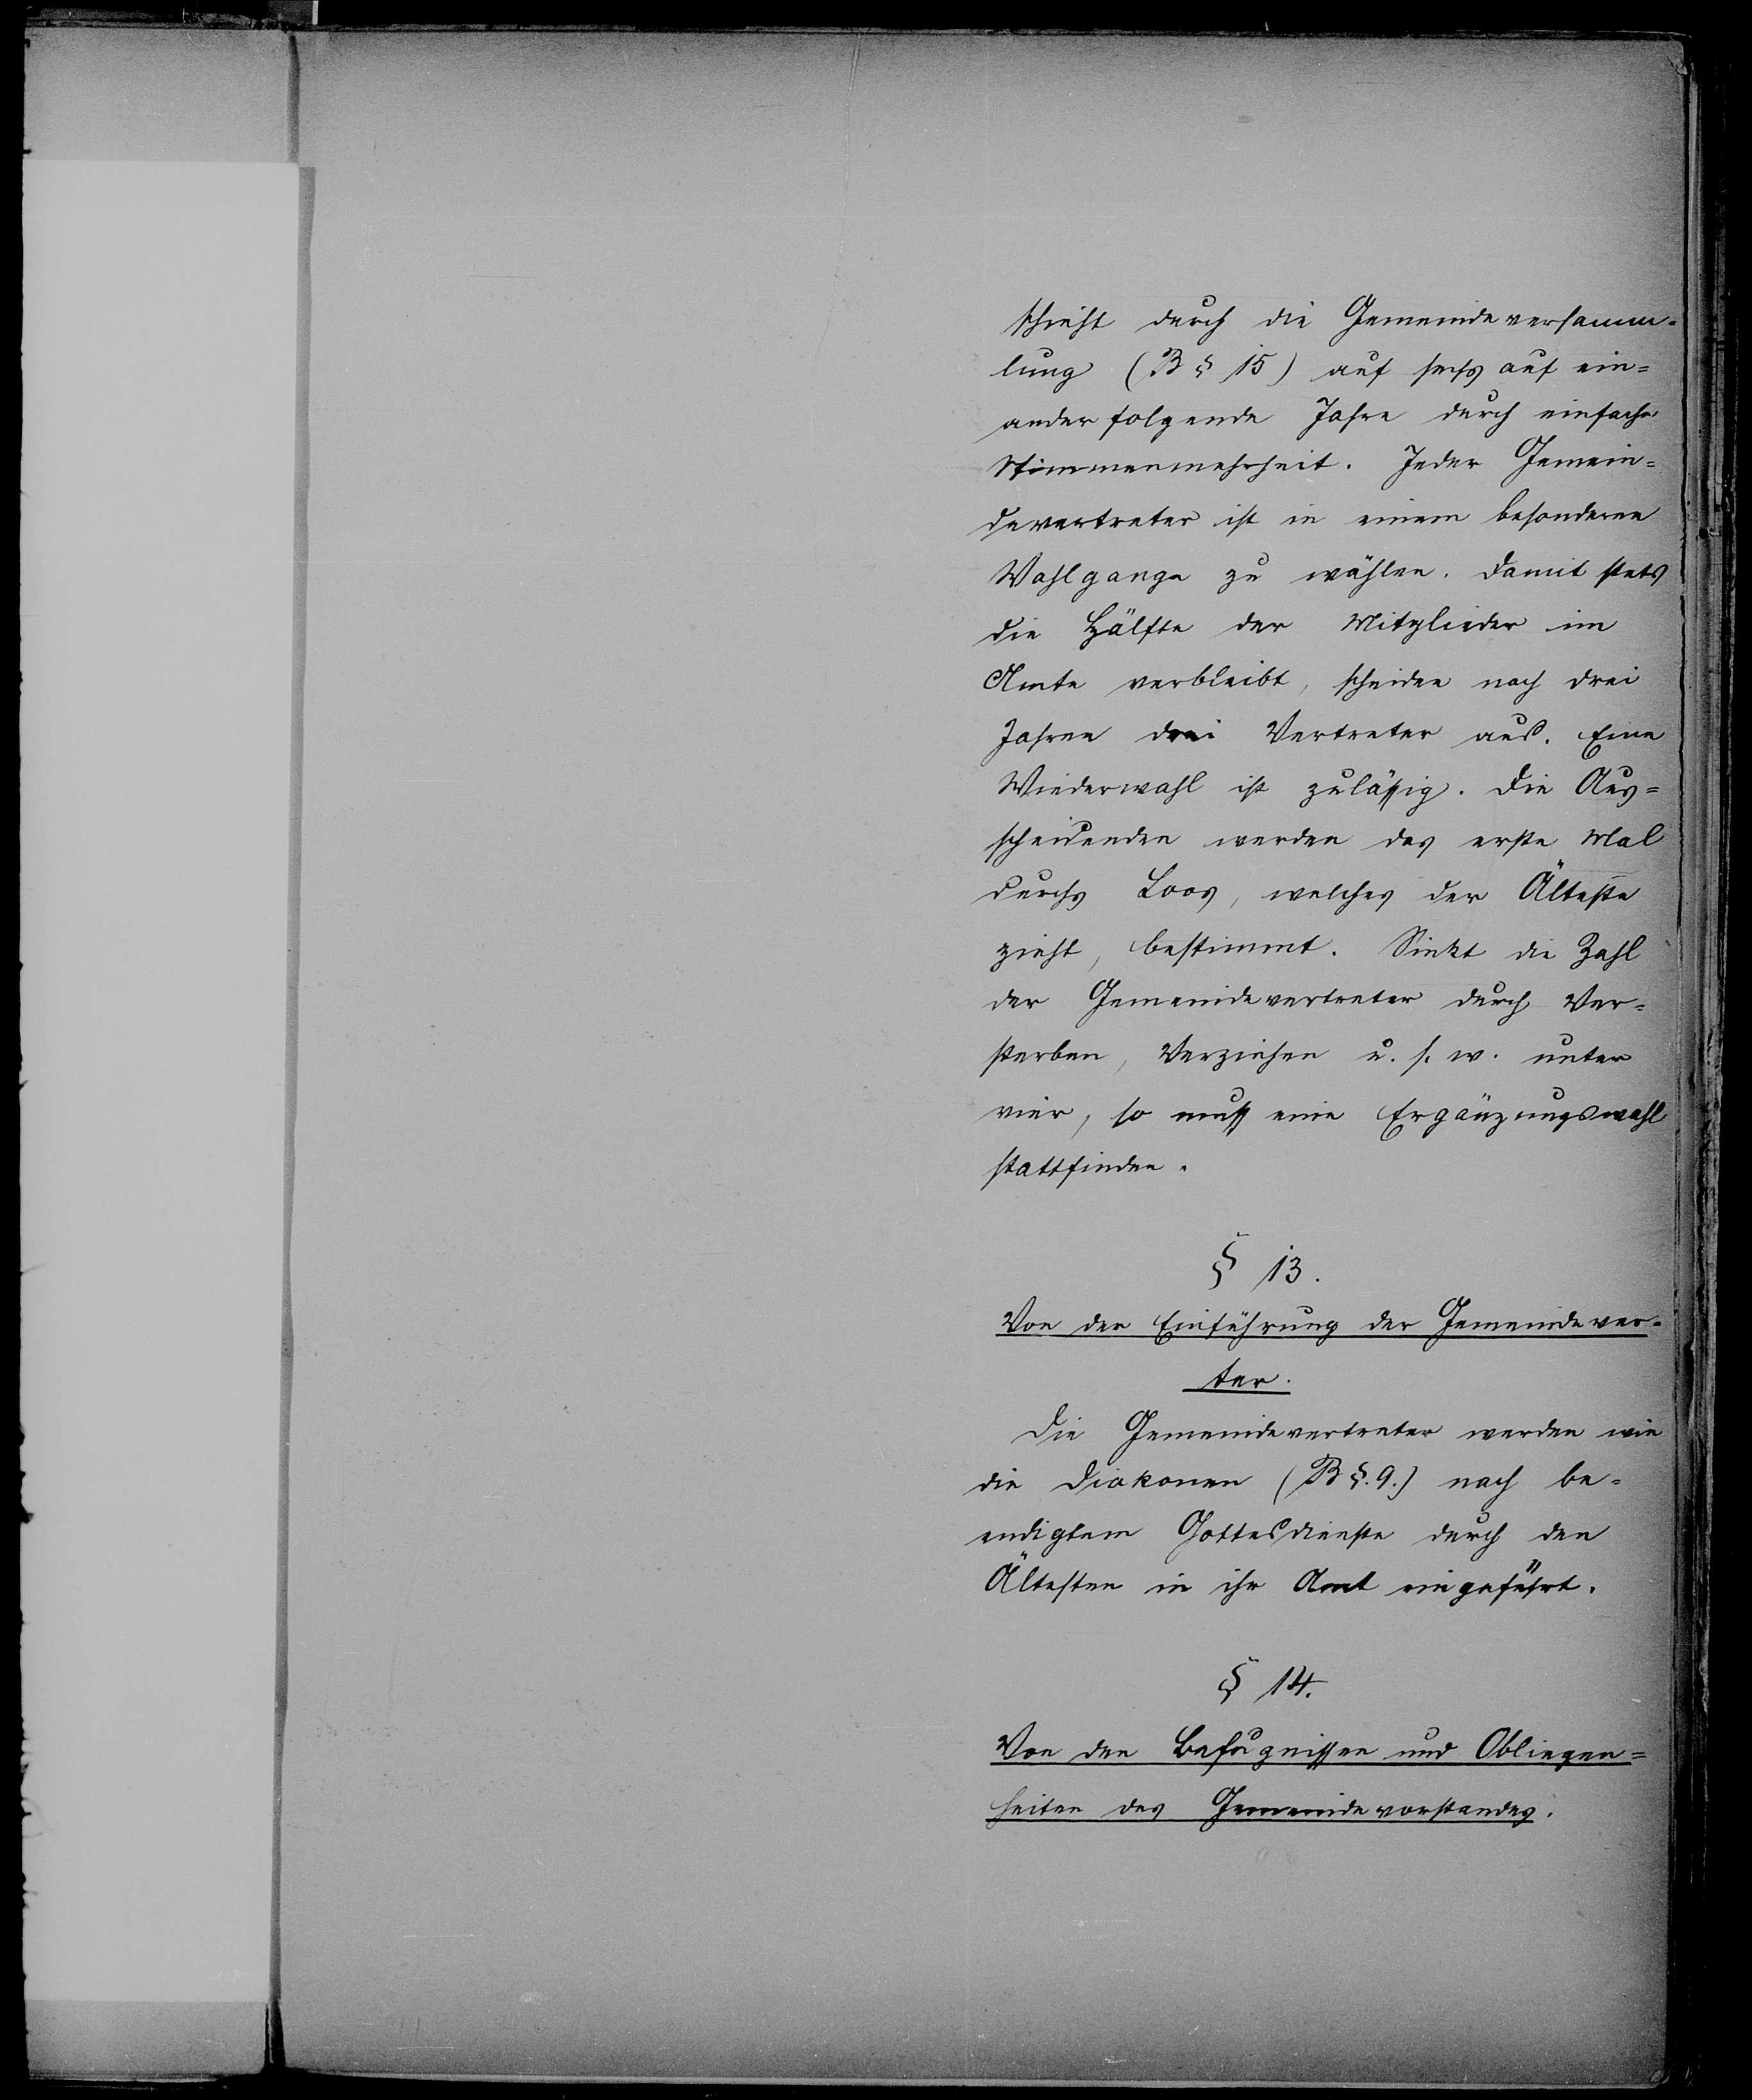 schieht durch die Gemeindeversamm-
lung (B § 15) auf sechs auf ein=
ander folgende Jahre durch einfache
Stimmenmehrheit. Jeder Gemein=
devertreter ist in einem besonderen
Wahlgange zu wählen. Damit stets
die Hälfte der Mitglieder im
Amte verbleibt, scheiden nach drei
Jahren drei Vertreter aus. Eine
Wiederwahl ist zulässig. Die Aus=
scheidenden werden das erste Mal
durchs Loos, welches der Älteste
zieht, bestimmt. Sinkt die Zahl
der Gemeindevertreter durch Ver=
sterben, Verziehen u. s. w. unter
vier, so muss eine Ergänzungswahl
stattfinden.
§ 13.
Von der Einführung der Gemeindever-
ter.
Die Gemeindevertreter werden wie
die Diakonen (B §. 9.) nach be-
endigtem Gottesdienste durch den
Ältesten in ihr Amt eingeführt.
§ 14.
Von den Befugnissen und Obliegen=
heiten des Gemeindevorstandes.